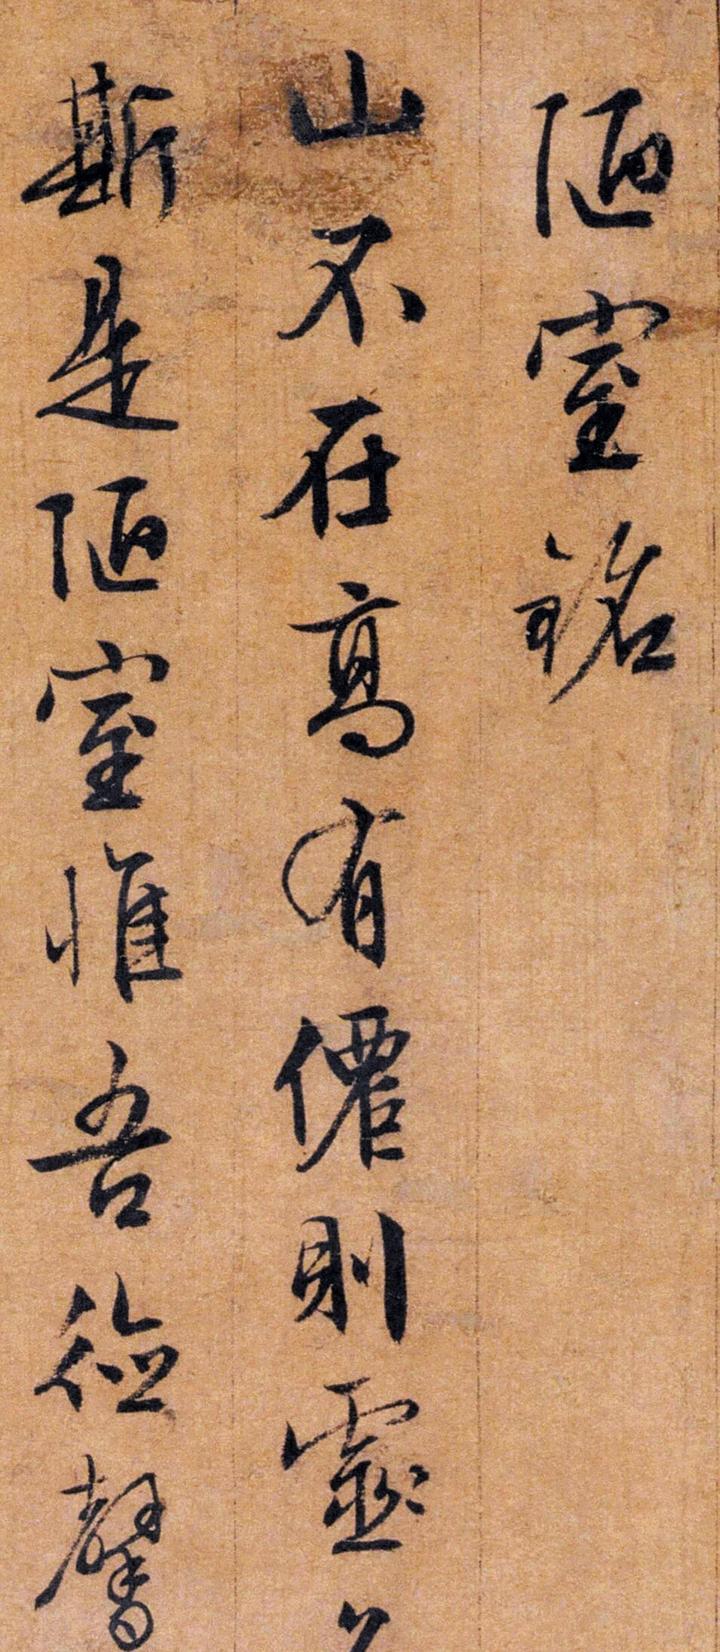 陋室銘
山不在高有僊則靈
斯是陋室惟吾德馨